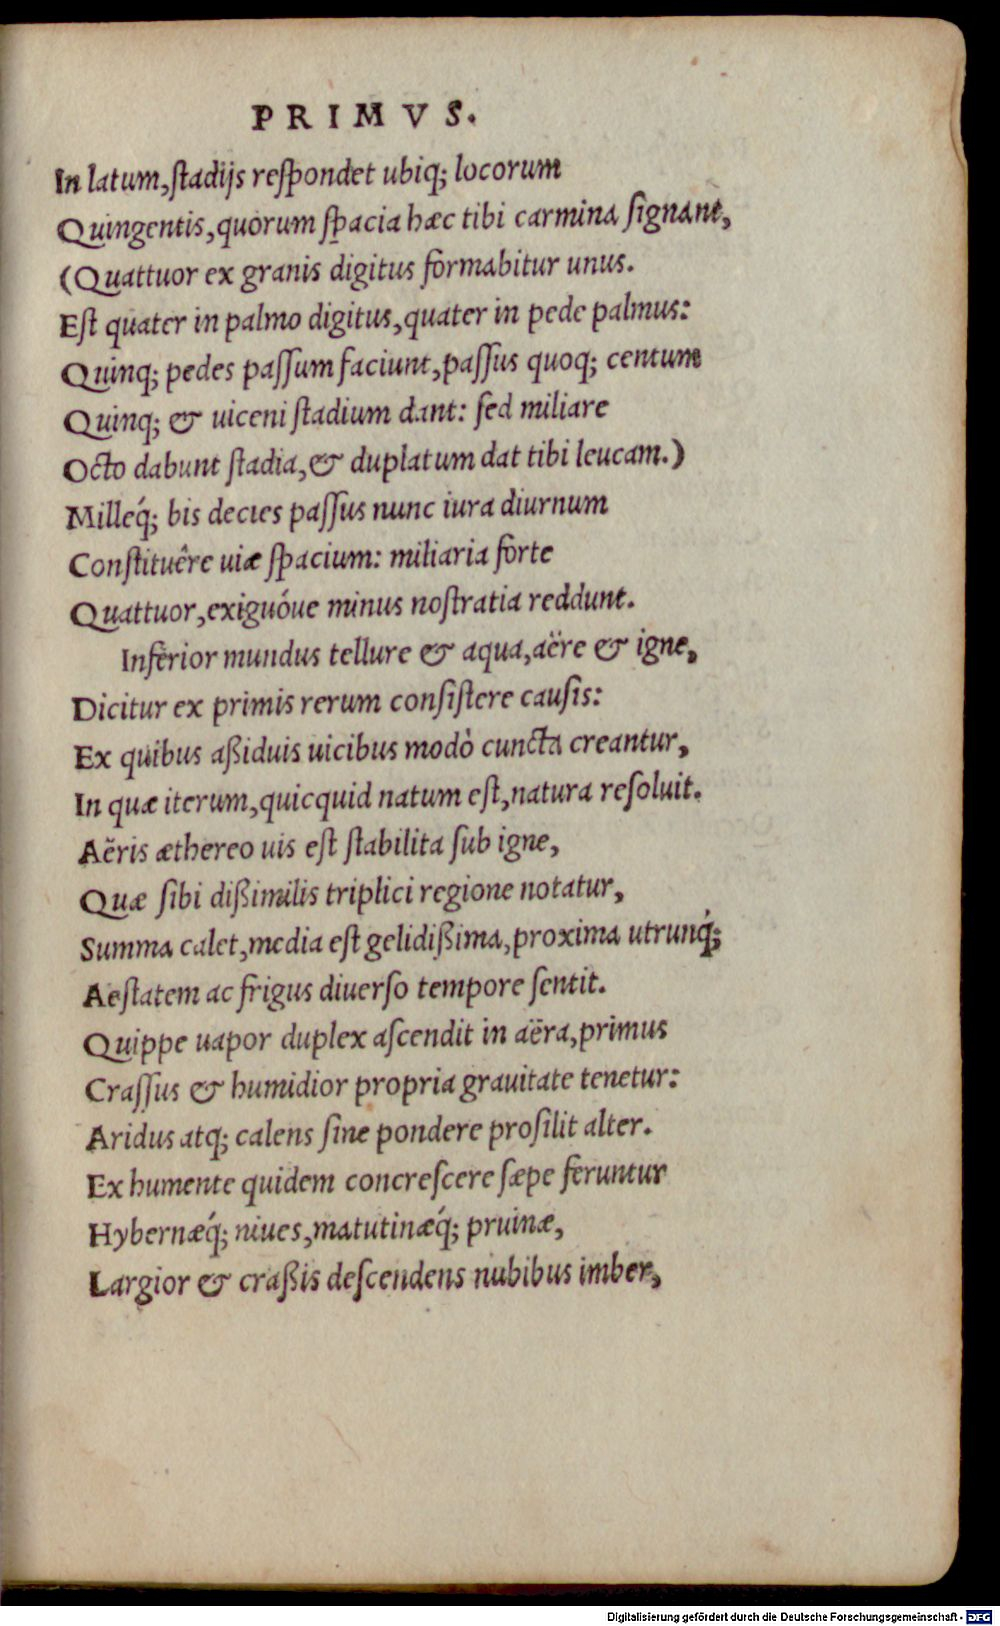 PRIMVS.
In latum,ſtadijs reſpondet ubiq; locorum
Quingentis,quorum ſpacia hæc tibi carmina ſignant,
(Quattuor ex granis digitus formabitur unus.
Eſt quater in palmo digitus,quater in pede palmus:
Quinq; pedes paſſum faciunt,paſſus quoq; centum
Quinq; & uiceni ſtadium dant: ſed miliare
Octo dabunt ſtadia,& duplatum dat tibi leucam.)
Milleq́; bis decies paſſus nunc iura diurnum
Conſtituêre uiæ ſpacium: miliaria forte
Quattuor,exiguóue minus noſtratia reddunt.
Inferior mundus tellure & aqua,aëre & igne,
Dicitur ex primis rerum conſiſtere cauſis:
Ex quibus aßiduis uicibus modò cuncta creantur,
In quæ iterum,quicquid natum eſt,natura reſoluit.
Aëris æthereo uis eſt ſtabilita ſub igne,
Quæ ſibi dißimilis triplici regione notatur,
Summa calet,media eſt gelidißima,proxima utrunq́;
Aeſtatem ac frigus diuerſo tempore ſentit.
Quippe uapor duplex aſcendit in aëra,primus
Craſſus & humidior propria grauitate tenetur:
Aridus atq; calens ſine pondere proſilit alter.
Ex humente quidem concreſcere ſæpe feruntur
Hybernæq́; niues,matutinæq́; pruinæ,
Largior & craßis deſcendens nubibus imber,
Digitalisierung gefördert durch die Deutsche Forschungsgemeinschaft - DFG